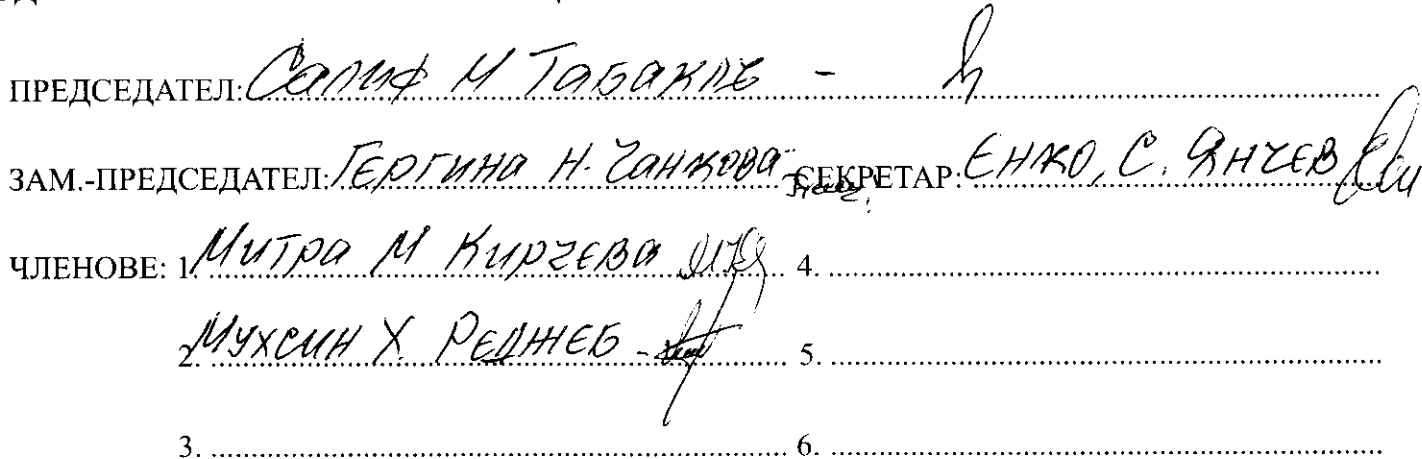 ПРЕДСЕДАТЕЛ: Салиф М Табакль -
ЗАМ.-ПРЕДСЕДАТЕЛ: Гергина Н. Чанкова СЕКРЕТАР: Енко, С. Янчев
ЧЛЕНОВЕ: 1. Митра М Кирчева 4.
2. Мухсин Х. Реджеб - 5.
3. 6.